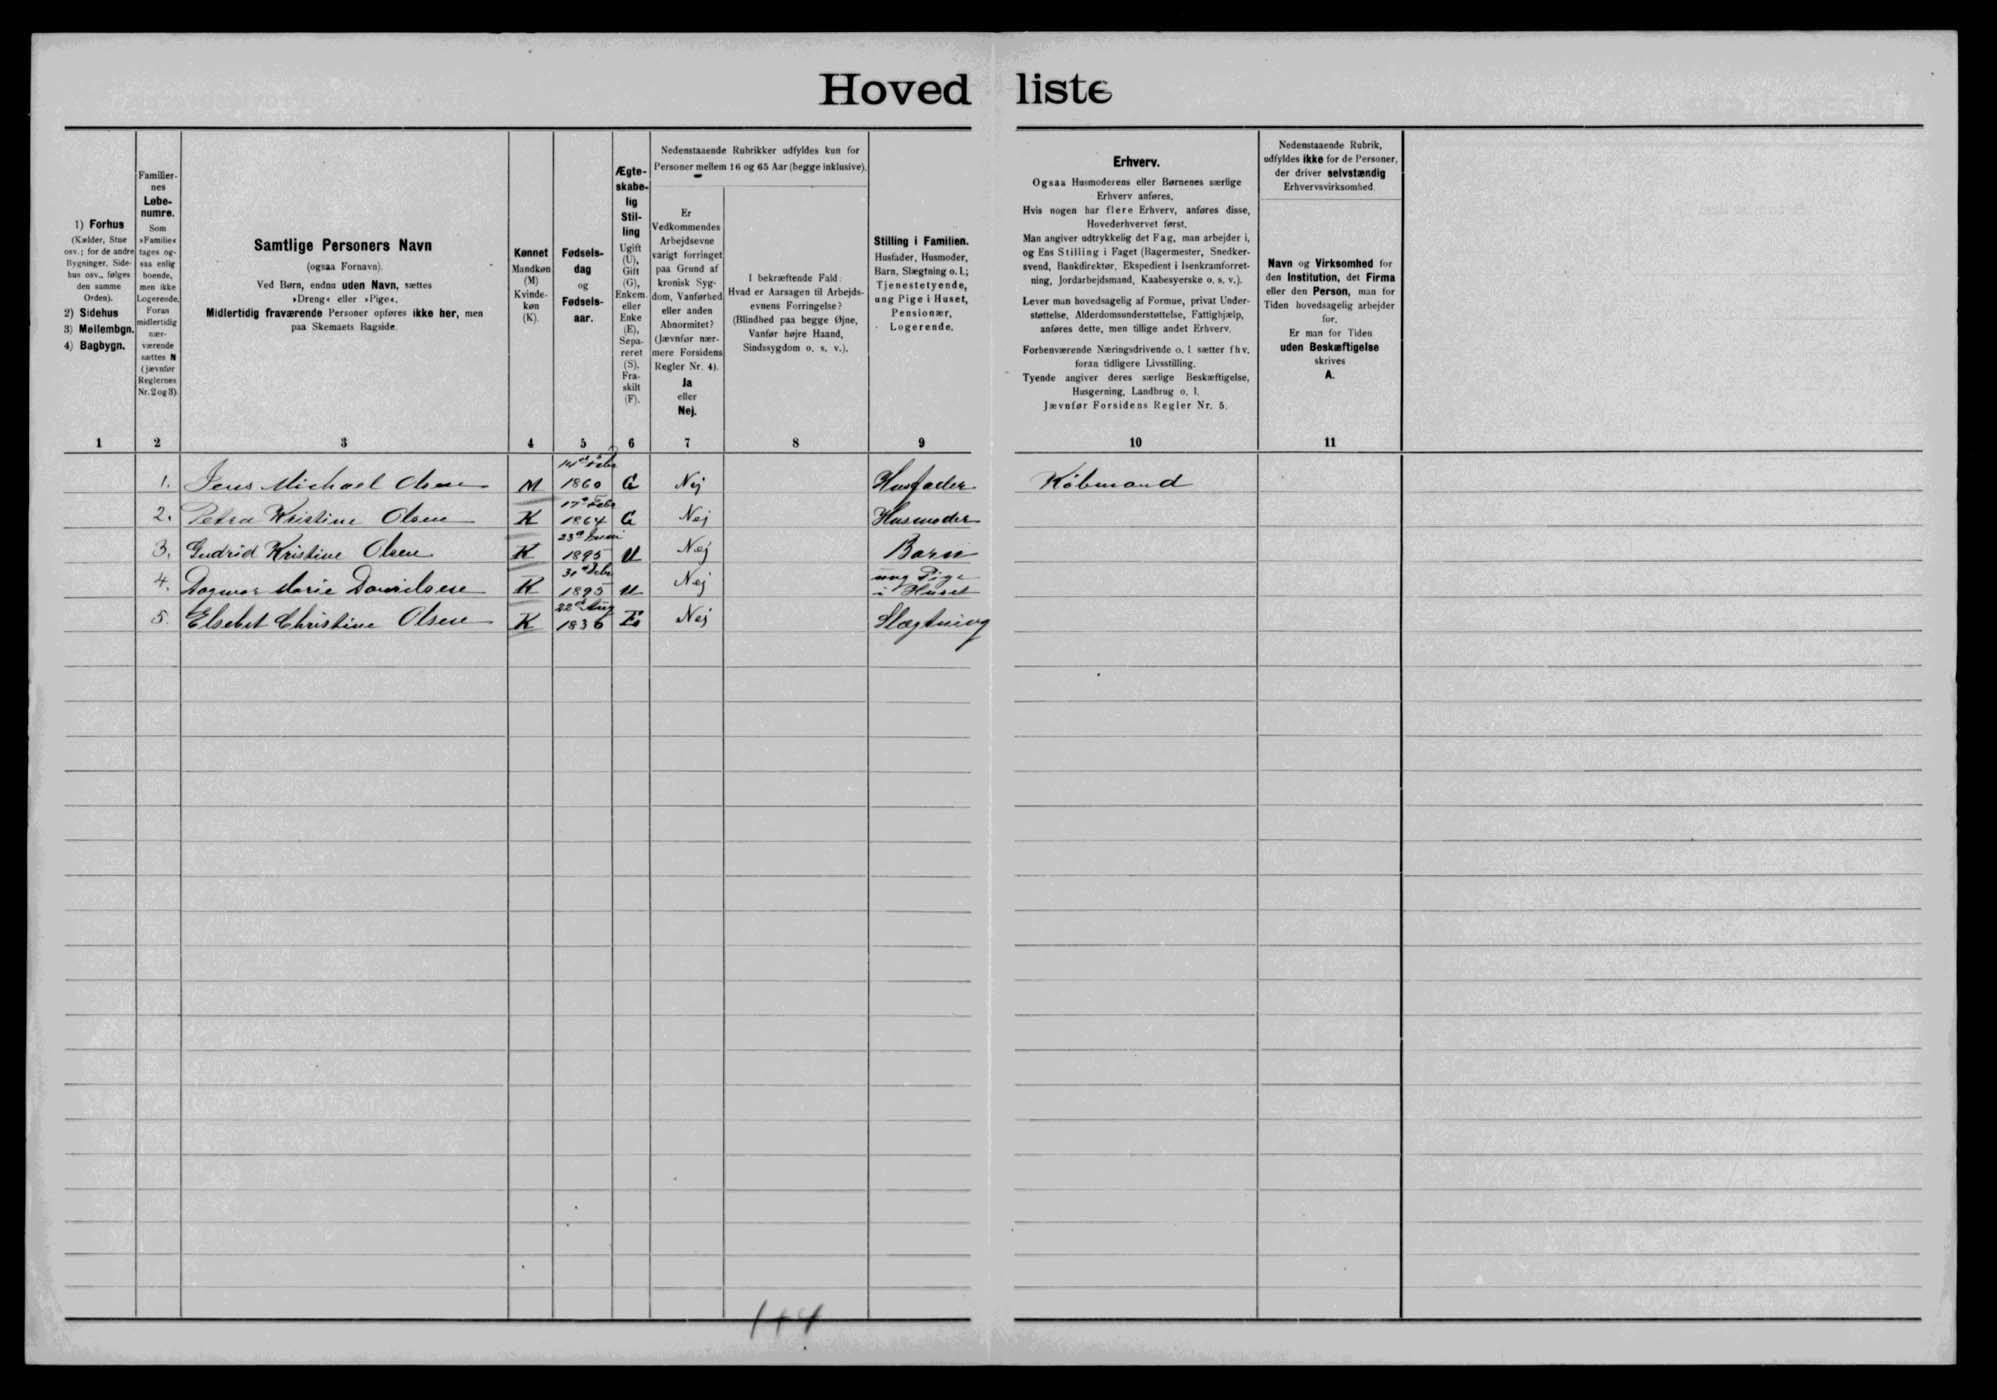 Hovedliste
1) Forhus
(Kælder, Stue
osv.; for de andre
Bygninger, Side-
hus osv., følges
den samme
Orden).
2) Sidehus
3) Mellembgn.
4) Bagbygn.
Familier-
nes
Løbe-
numre.
Som
»Familie«
tages og-
saa enlig
boende,
men ikke
Logerende.
Foran
midlertidig
nær-
værende
sættes N
(jævnfør
Reglernes
Nr. 2 og 3)
Samtlige Personers Navn
(ogsaa Fornavn).
Ved Børn, endnu uden Navn, sættes
»Dreng« eller »Pige«.
Midlertidig fraværende Personer opføres ikke her, men
paa Skemaets Bagside.
Kønnet
Mandkøn
(M)
Kvinde-
køn
(K).
Fødsels-
dag
og
Fødsels-
aar.
Ægte-
skabe-
lig
Stil-
ling
Ugift
(U),
Gift
(G),
Enkem.
eller
Enke
(E),
Sepa-
reret
(S),
Fra-
skilt
(F).
Nedenstaaende Rubrikker udfyldes kun for
Personer mellem 16 og 65 Aar (begge inklusive).
Er
Vedkommendes
Arbejdsevne
varigt forringet
paa Grund af
kronisk Syg-
dom, Vanførhed
eller anden
Abnormitet?
(Jævnfør nær-
mere Forsidens
Regler Nr. 4).
Ja
eller
Nej.
I bekræftende Fald:
Hvad er Aarsagen til Arbejds-
evnens Forringelse?
(Blindhed paa begge Øjne,
Vanfør højre Haand,
Sindssygdom o. s. v.).
Stilling i Familien.
Husfader, Husmoder,
Barn, Slægtning o. l.;
Tjenestetyende,
ung Pige i Huset,
Pensionær,
Logerende.
Erhverv.
Ogsaa Husmoderens eller Børnenes særlige
Erhverv anføres.
Hvis nogen har flere Erhverv, anføres disse,
Hovederhvervet først.
Man angiver udtrykkelig det Fag, man arbejder i,
og Ens Stilling i Faget (Bagermester, Snedker-
svend, Bankdirektør, Ekspedient i Isenkramforret-
ning, Jordarbejdsmand, Kaabesyerske o. s. v.).
Lever man hovedsagelig af Formue, privat Under-
støttelse, Alderdomsunderstøttelse, Fattighjælp,
anføres dette, men tillige andet Erhverv.
Forhenværende Næringsdrivende o. l. sætter fhv.
foran tidligere Livsstilling.
Tyende angiver deres særlige Beskæftigelse,
Husgerning, Landbrug o. l.
Jævnfør Forsidens Regler Nr. 5.
Nedenstaaende Rubrik,
udfyldes ikke for de Personer,
der driver selvstændig
Erhvervsvirksomhed.
Navn og Virksomhed for
den Institution, det Firma
eller den Person, man for
Tiden hovedsagelig arbejder
for.
Er man for Tiden
uden Beskæftigelse
skrives
A.
1 2 3 4 5 6 7 8 9 10 11
1. Jens Michael Olsen M 14de Febr 1860 G Nej Husfader Købmand
2. Petra Kristine Olsen K 17de Febr 1864 G Nej Husmoder
3. Gudrid Kristine Olsen K 23de 1895 U Nej Barn
4. Dagmar Marie Danielsen K 31 1895 U Nej ung Pige i Huset
5. Elsebet Christine Olsen K 22de Aug 1836 E Nej Slægtning